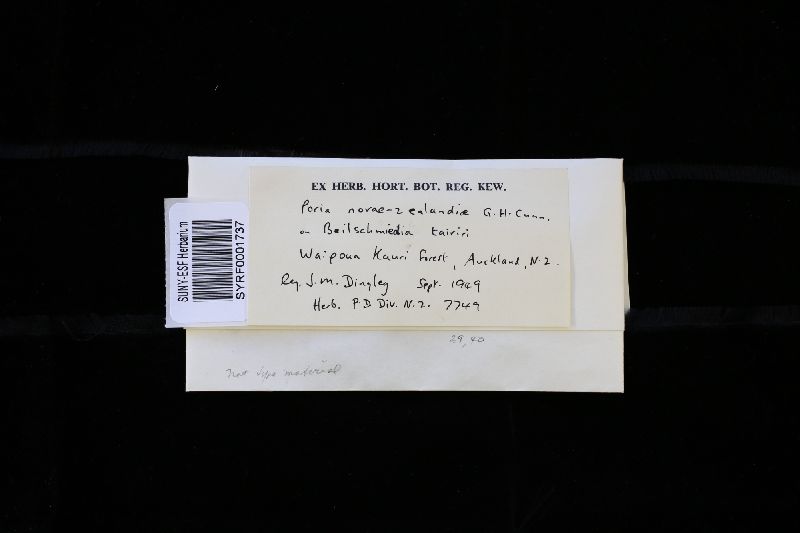 EX HERB. HORT. BOT. REG. KEW.
Poria novae-zealandiae G.H. Cunn.
on Beilschmiedia tairiri
Waipoua Kauri Forest, Auckland, N.Z.
leg. J.M. Dingley Sept. 1949
Herb. P.D. Div. N.Z. 7749
SUNY-ESF Herbarium
SYRF0001737
29,40
not type material